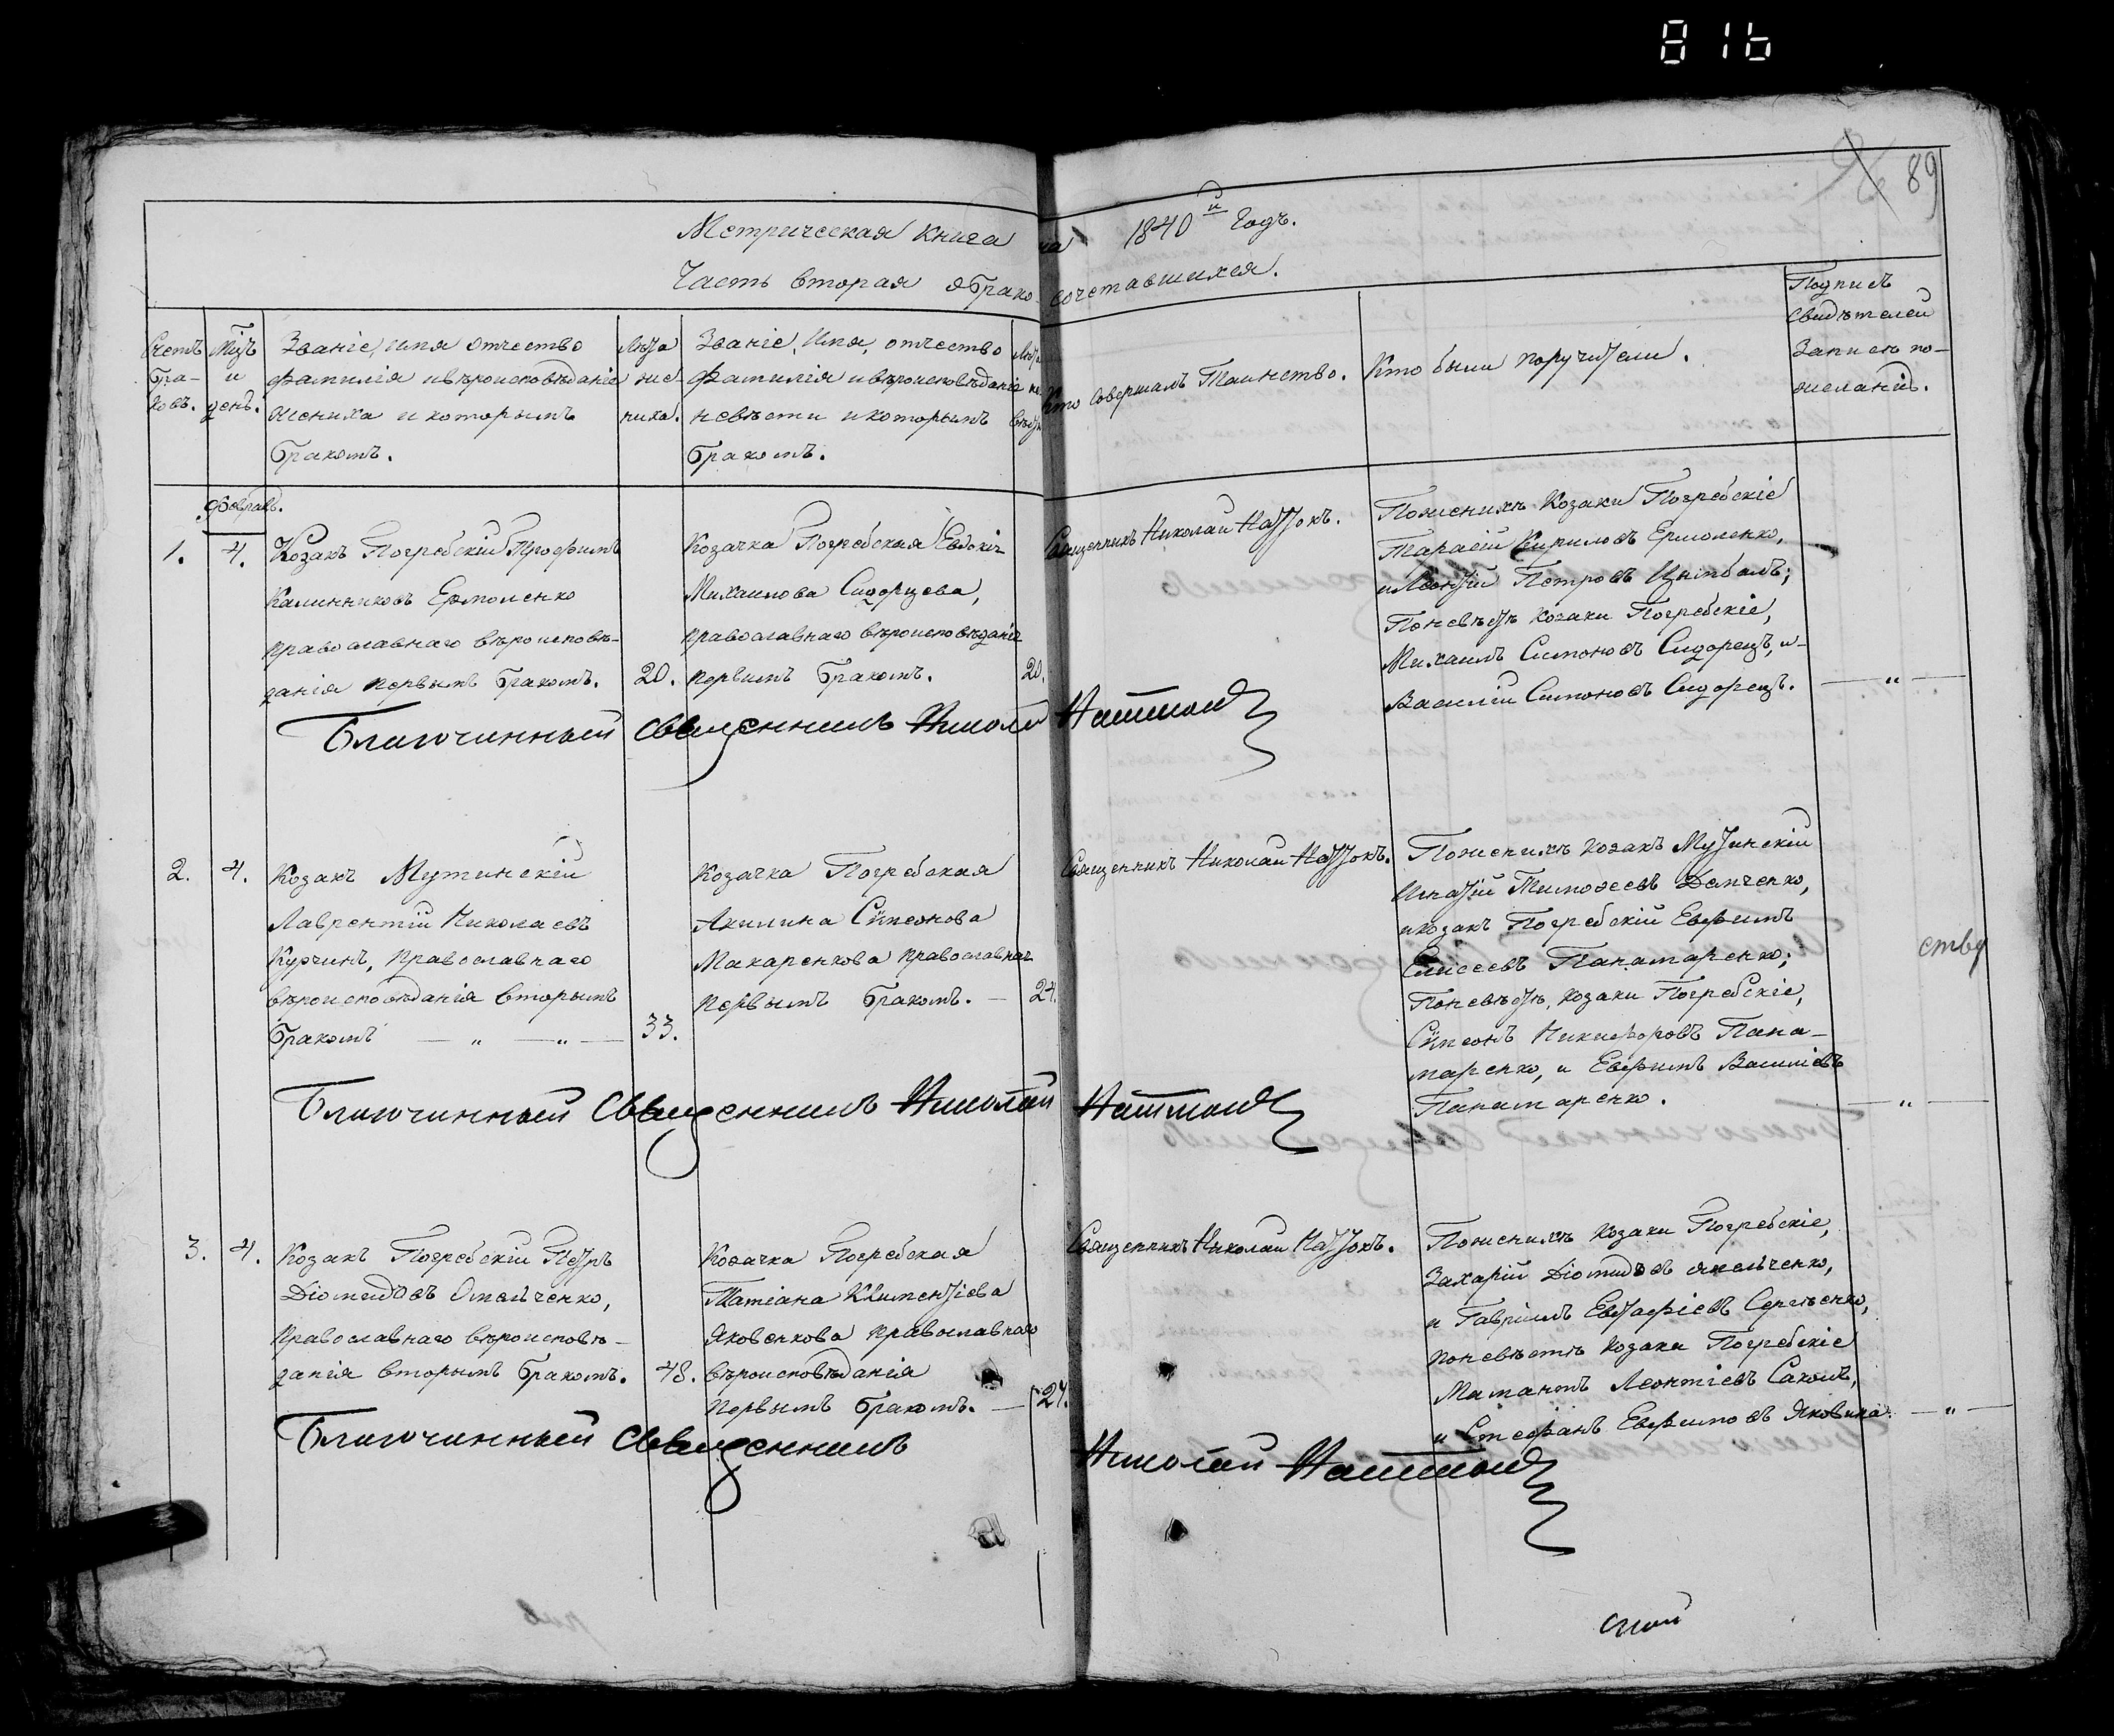 816
89
Метрическая книга на 1840й Годъ.
Часть вторая о брако-сочетавшихся.
Счетъ бра-ковъ.
Мцъ и день.
Званіе, имя отчество
фамилія и вѣроисповѣданіе
жениха и которымъ
бракомъ.
Лѣта
же-
ниха.
Званіе, Имя, отчество
фамилія и вѣроисповѣданіе
невѣсты и которымъ
бракомъ.
Лѣта
не-
вѣсты
Кто совершалъ Таинство.
Кто были поручители.
Подписъ
свидѣтелей
Записей по-
желанію.
Февраль.
1.
4.
Козакъ Погребскій Трофимъ
Калинниковъ Ермоленко
православнаго вѣроисповѣ-
данія первымъ бракомъ.
20.
Козачка Погребская Евдокія
Михаилова Сидорцева,
православнаго вѣроисповѣданія
первымъ бракомъ.
20.
Священникъ Николай Наттокъ.
Поженихѣ Козаки Погребскіе
Тарасій Кириловъ Ермоленко,
и Леонтій Петровъ Цымбалъ;
Поневѣстѣ козаки Погребскіе,
Михаилъ Симоновъ Сидорецъ, и-
Василій Симоновъ Сидорецъ.
— „ —
Благочинный Священникъ Николай Наттокъ
2.
4.
Козакъ Мутинскій
Лаврентій Николаевъ
Курчинъ, православнаго
вѣроисповѣданія вторымъ
бракомъ — „ — „ —
33.
Козачка Погребская
Акилина Сѵмеонова
Макаренкова православнаго
первымъ бракомъ. —
24.
Священникъ Николай Наттокъ.
Поженихѣ козакъ Мутинскій
Игнатій Тимоѳеевъ Демченко,
и козакъ Погребскій Евфимъ
Елисеевъ Панамаренко;
Поневѣстѣ, козаки Погребскіе,
Сѵмеонъ Никифоровъ Пана-
маренко, и Евфимъ Василіевъ
Панамаренко.
— „ —
ству
Благочинный Священникъ Николай Наттокъ
3.
4.
Козакъ Погребскій Петръ
Діомидовъ Омельченко,
православнаго вѣроисповѣ-
данія вторымъ бракомъ.
48.
Козачка Погребская
Татіана Климентіева
Яковенкова православнаго
вѣроисповѣданія
первымъ бракомъ. —
27.
Священникъ Николай Наттокъ.
Поженихѣ Козаки Погребскіе,
Захарій Діомидовъ Омельченко,
и Гавріилъ Евстафіевъ Сергѣенко,
поневѣстѣ козаки Погребскіе
Мамантъ Леонтіевъ Сахонъ,
и Стефанъ Евфимовъ Яковина.
— „ —
Благочинный Священникъ Николай Наттокъ